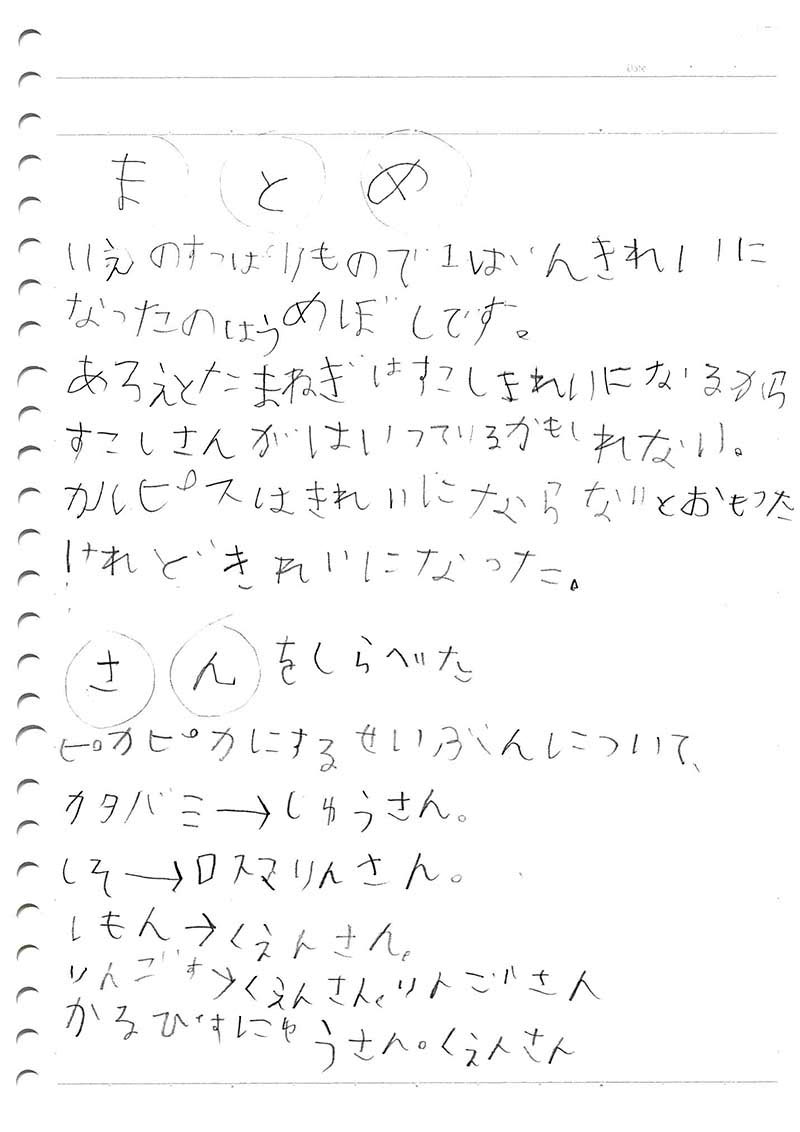 Date
まとめ
いえのすっぱいもので1ばんきれいに
なったのはうめぼしです。
あろえとたまねぎはすこしきれいになるから
すこしさんがはいっているかもしれない。
カルピスはきれいにならないとおもった
けれどきれいになった。
さんをしらべた
ピカピカにするせいぶんについて、
カタバミ→しゅうさん。
しそ→ロスマりんさん。
レもん→くえんさん。
りんごす→くえんさん。りんごさん
かるぴすにゅうさん。くえんさん